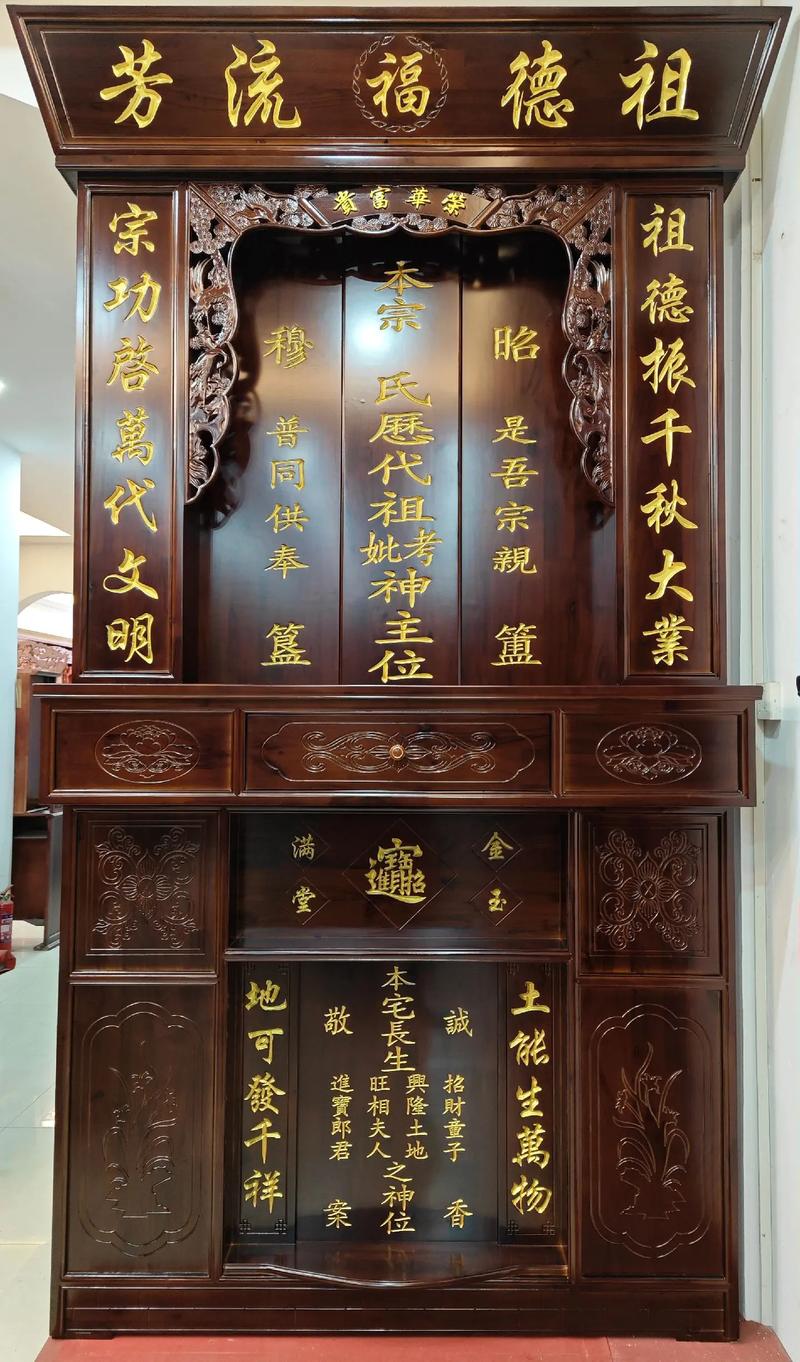 祖德福流芳
榮華富貴
祖德振千秋大業
昭 是吾宗親 簠
本宗 氏歷代祖考妣神主位
穆 普同供奉 簋
宗功啓萬代文明
金玉
招財進寶
满堂
土能生萬物
誠 招財童子 香
本宅長生 興隆土地 旺相夫人 之神位
敬 進寶郎君 案
地可發千祥